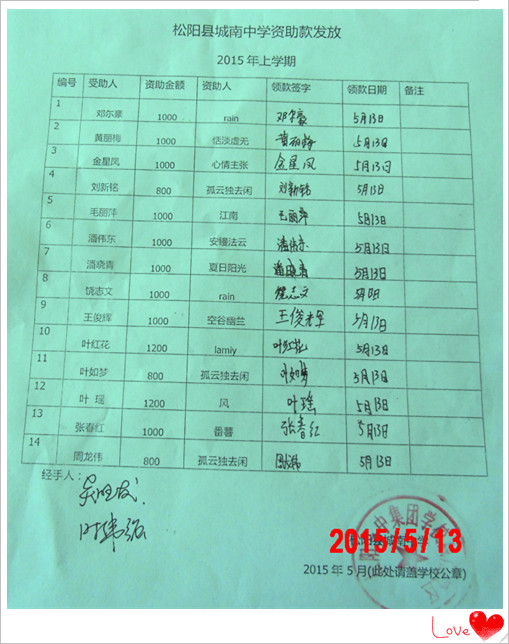 松阳县城南中学资助款发放
2015年上学期
编号 受助人 资助金额 资助人 领款签字 领款日期 备注
1 邓尔豪 1000 rain 邓尔豪 5月13日
2 黄丽梅 1000 恬淡虚无 黄丽梅 5月13日
3 金星凤 1000 心情主张 金星凤 5月13日
4 刘新铭 800 孤云独去闲 刘新铭 5月13日
5 毛丽萍 1000 江南 毛丽萍 5月13日
6 潘伟东 1000 安缦法云 潘伟东 5月13日
7 潘晓青 1000 夏日阳光 潘晓青 5月13日
8 饶志文 1000 rain 饶志文
9 王俊辉 1000 空谷幽兰 王俊辉 5月13日
10 叶红花 1200 lamiy 叶红花 5月13日
11 叶如梦 800 孤云独去闲 叶如梦 5月13日
12 叶瑶 1200 风 叶瑶 5月13日
13 张春红 1000 番薯 张春红 5月13日
14 周龙伟 800 孤云独去闲 5月13日
经手人：
中集团学
松阳县城南中学
2015/5/13
2015年5月(此处请盖学校公章)
Love